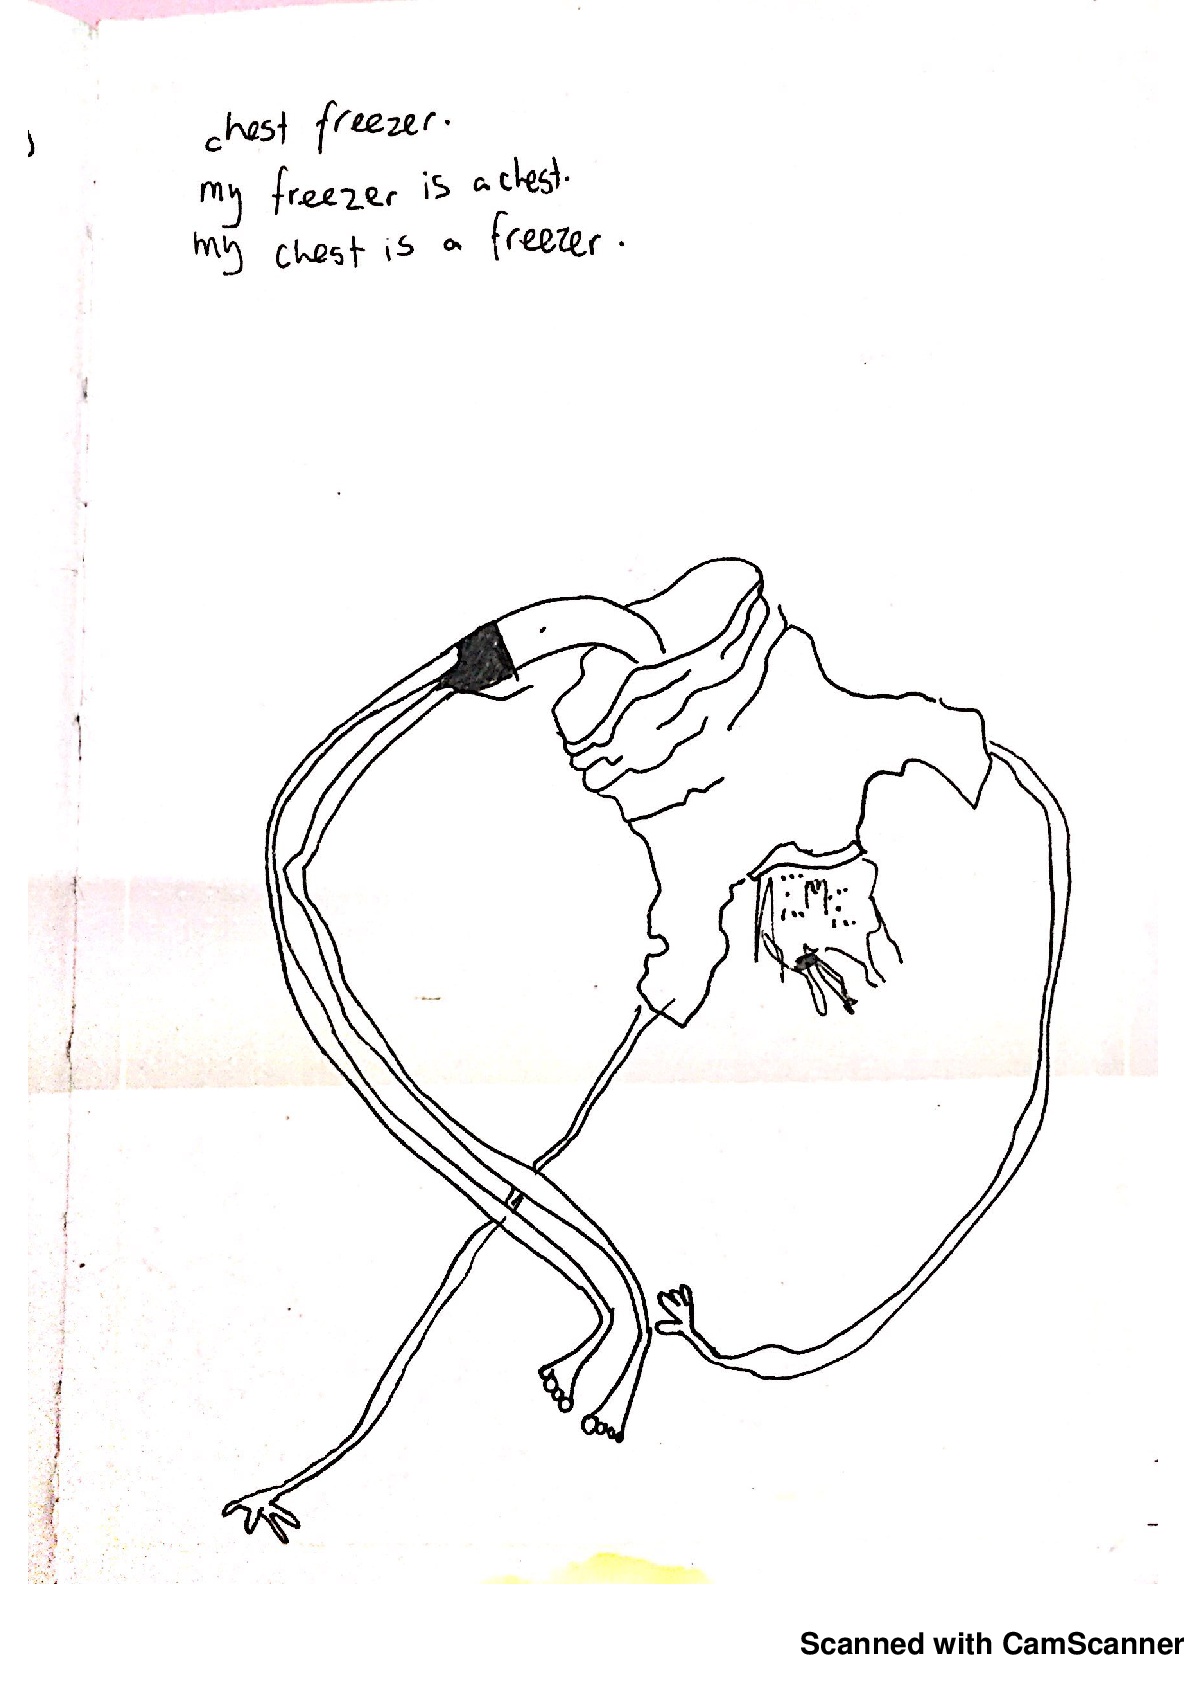 chest freezer.
my freezer is a chest.
my chest is a freezer.
Scanned with CamScanner